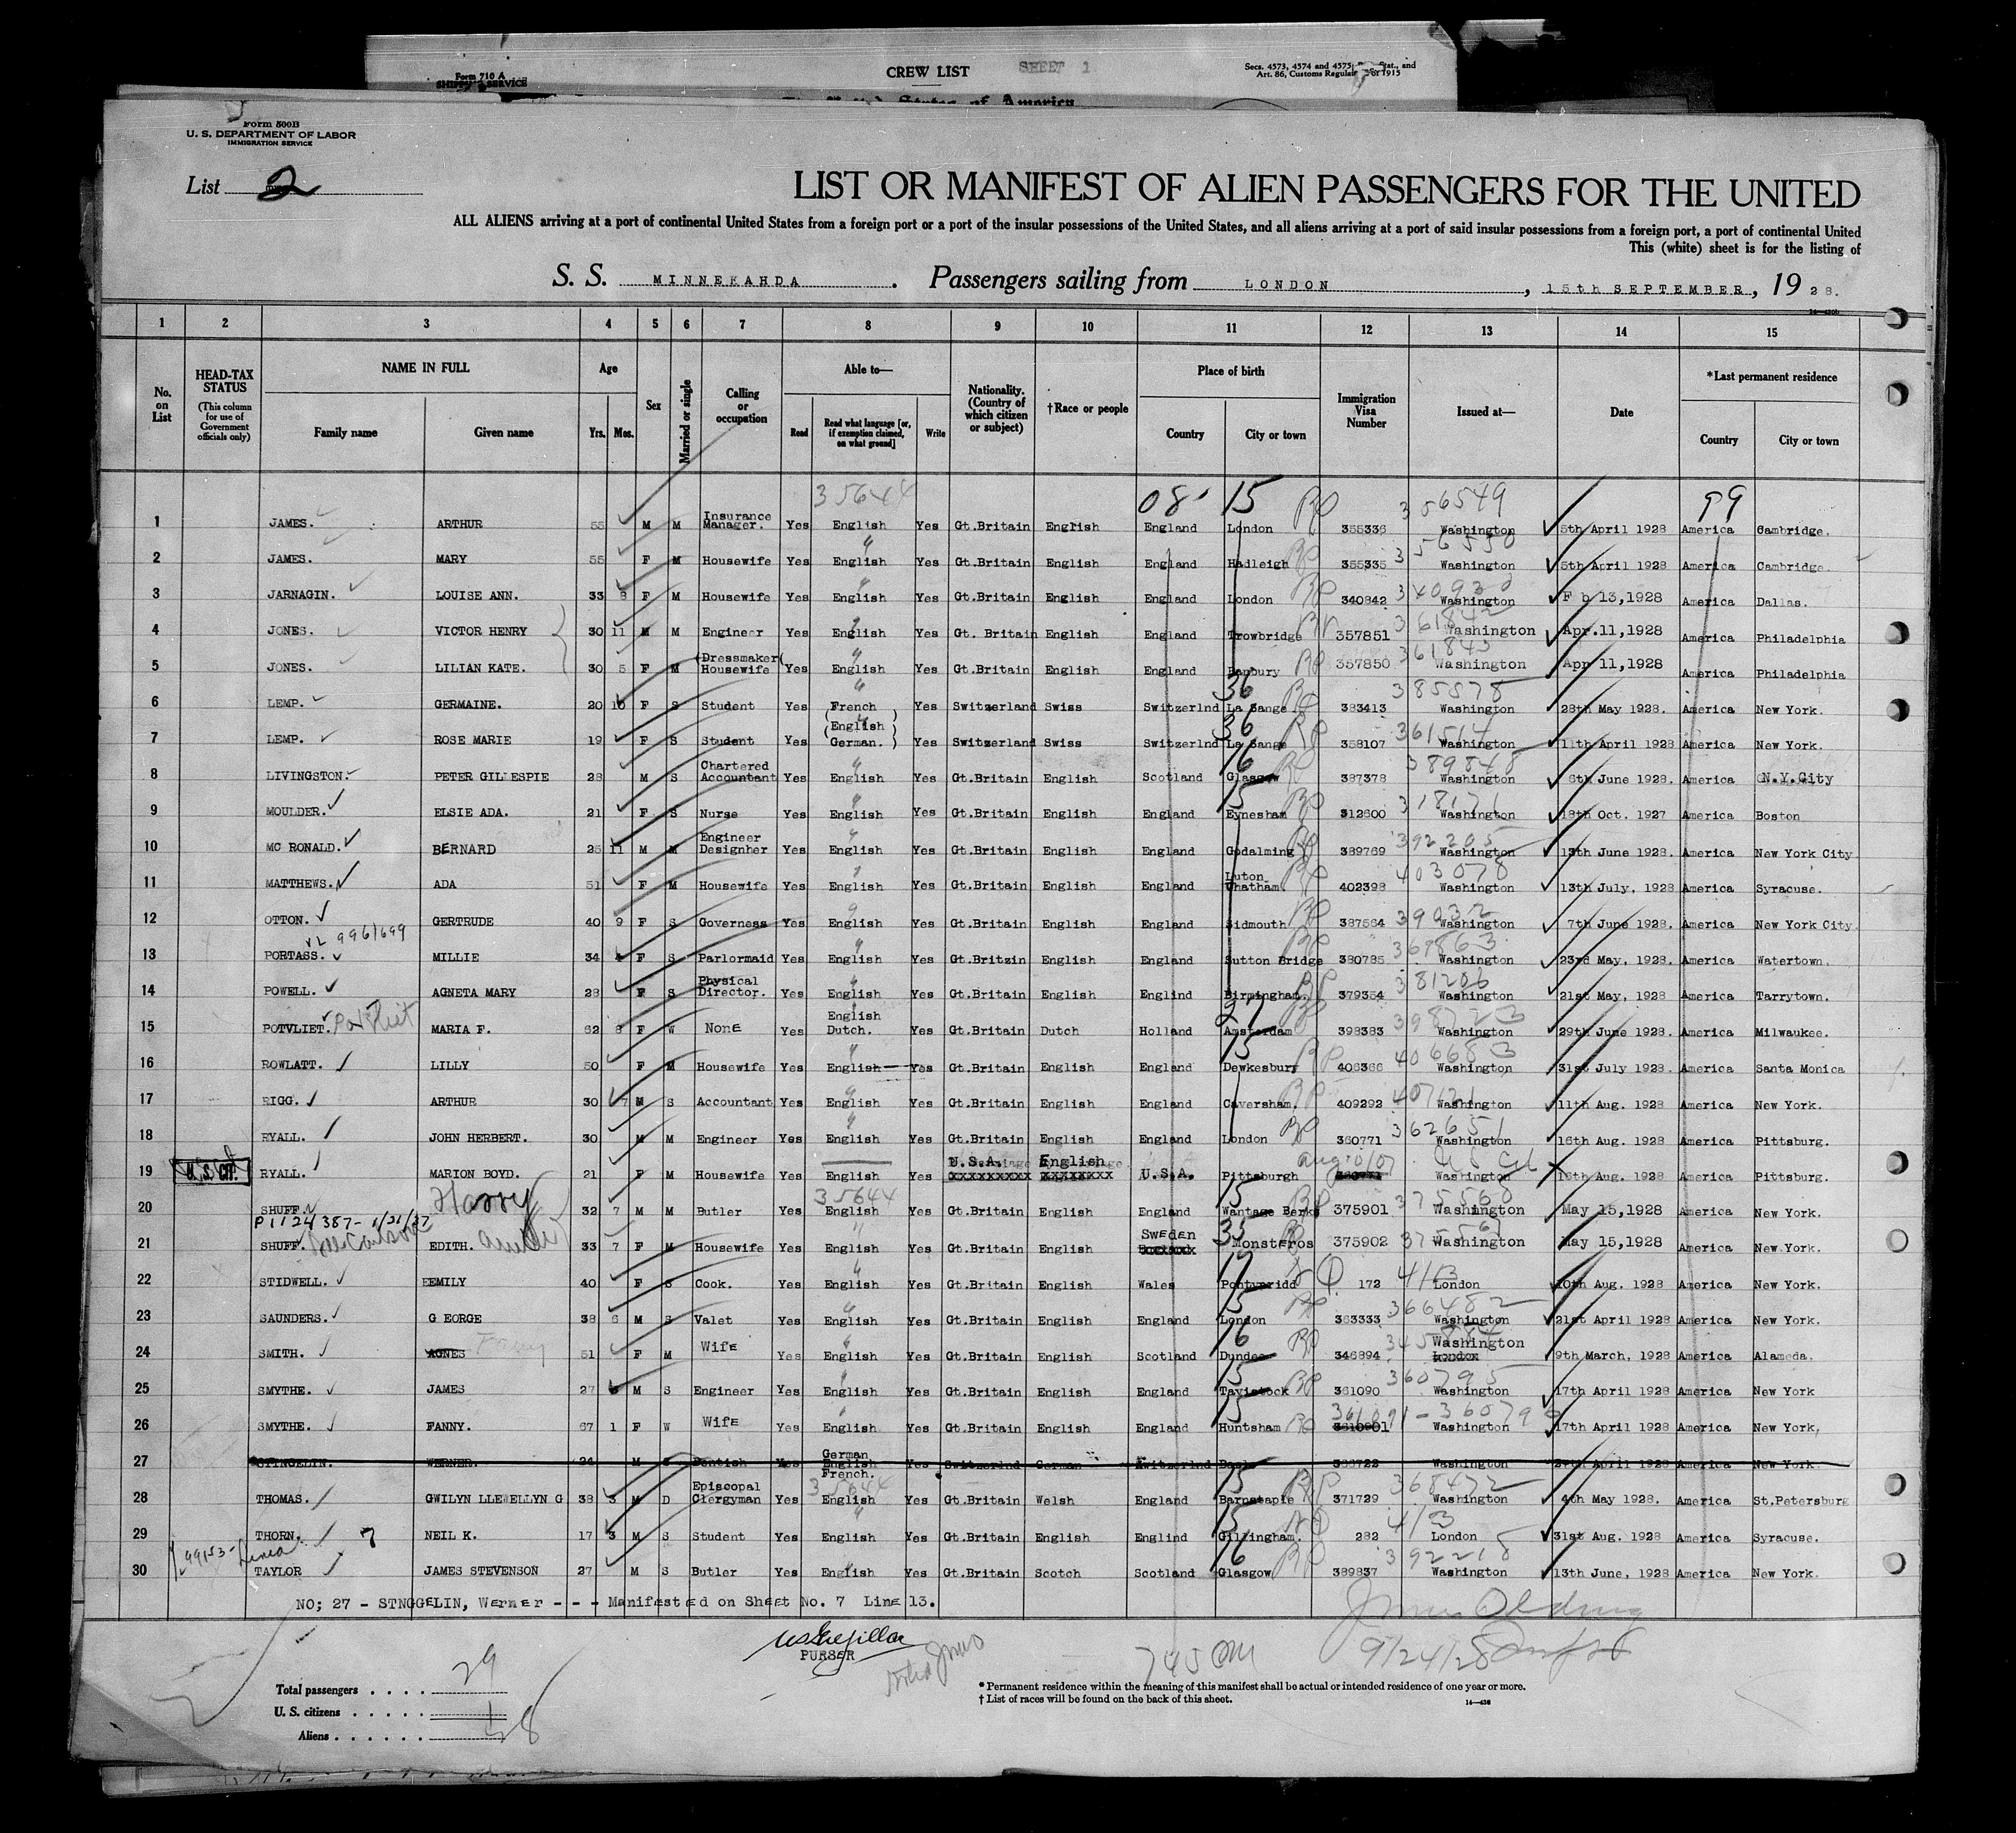 Form 710 A
SHIPPING SERVICE
CREW LIST
SHEET 1
Secs. 4573, 4574 and 4575, Stat., and
Art. 86, Customs Regulat of 1915
States of America
Form 500B
U. S. DEPARTMENT OF LABOR
IMMIGRATION SERVICE
List 2
LIST OR MANIFEST OF ALIEN PASSENGERS FOR THE UNITED
ALL ALIENS arriving at a port of continental United States from a foreign port or a port of the insular possessions of the United States, and all aliens arriving at a port of said insular possessions from a foreign port, a port of continental United
This (white) sheet is for the listing of
S. S. MINNEKAHDA. Passengers sailing from LONDON, 15th SEPTEMBER, 1928.
1 2 3 4 5 6 7 8 9 10 11 12 13 14 15
No. on List
HEAD-TAX STATUS (This column for use of Government officials only)
NAME IN FULL
Family name Given name
Age
Yrs. Mos.
Sex
Married or single
Calling or occupation
Able to—
Read
Read what language [or, if exemption claimed, on what ground]
Write
Nationality. (Country of which citizen or subject)
†Race or people
Place of birth
Country City or town
Immigration Visa Number
Issued at—
Date
*Last permanent residence
Country City or town
35644 08- 15 356549 99
1 JAMES. ARTHUR 55 M M Insurance Manager. Yes English Yes Gt.Britain English England London 355336 Washington 5th April 1928 America Cambridge.
2 JAMES. MARY 55 F M Housewife Yes English Yes Gt.Britain English England Hadleigh 355335 356550 Washington 5th April 1928 America Cambridge.
3 JARNAGIN. LOUISE ANN. 33 8 F M Housewife Yes English Yes Gt.Britain English England London 340842 Washington F b 13,1928 America Dallas.
4 JONES. VICTOR HENRY 30 11 M M Engineer Yes English Yes Gt. Britain English England Trowbridge 357851 361842 Washington Apr.11,1928 America Philadelphia
5 JONES. LILIAN KATE. 30 5 F M (Dressmaker( Housewife Yes English Yes Gt.Britain English England Banbury 357850 361843 Washington Apr 11,1928 America Philadelphia
6 LEMP. GERMAINE. 20 10 F S Student Yes French Yes Switzerland Swiss Switzerlnd 36 La Sange 383413 385578 Washington 28th May 1928. America New York.
7 LEMP. ROSE MARIE 19 F S Student Yes (English) (German.) Yes Switzerland Swiss Switzerlnd 36 La Sange 358107 361514 Washington 11th April 1928 America New York.
8 LIVINGSTON. PETER GILLESPIE 28 M S Chartered Accountant Yes English Yes Gt.Britain English Scotland 16 Glasgow 387378 389848 Washington 6th June 1928. America N.Y.City
9 MOULDER. ELSIE ADA. 21 F S Nurse Yes English Yes Gt.Britain English England 15 Eynesham 312600 318171 Washington 18th Oct. 1927 America Boston
10 MC RONALD. BERNARD 25 11 M M Engineer Designher Yes English Yes Gt.Britain English England Godalming 389769 392205 Washington 13th June 1928. America New York City
11 MATTHEWS. ADA 51 F M Housewife Yes English Yes Gt.Britain English England Luton Chatham. 402398 403078 Washington 13th July, 1928 America Syracuse.
12 OTTON. GERTRUDE 40 9 F S Governess Yes English Yes Gt.Britain English England Sidmouth 387564 39032 Washington 7th June 1928. America New York City
V2 9961699
13 PORTASS. MILLIE 34 4 F S Parlormaid Yes English Yes Gt.Britzin English England Sutton Bridge 380785 Washington 23rd May, 1928. America Watertown.
14 POWELL. AGNETA MARY 28 F S Physical Director. Yes English Yes Gt.Britain English Englind Birmingham. 379354 381206 Washington 21st May, 1928 America Tarrytown.
15 POTVLIET. Potvliet MARIA F. 62 8 F W None Yes English Dutch. Yes Gt.Britain Dutch Holland 27 Amsterdam 398383 398723 Washington 29th June 1928. America Milwaukee.
16 ROWLATT. LILLY 50 F M Housewife Yes English Yes Gt.Britain English England 15 Dewkesbury 406366 406683 Washington 31st July 1928. America Santa Monica
17 RIGG. ARTHUR 30 7 M S Accountant Yes English Yes Gt.Britain English England Caversham. 409292 407121 Washington 11th Aug. 1928 America New York.
18 RYALL. JOHN HERBERT. 30 M M Engineer Yes English Yes Gt.Britain English England London 360771 362651 Washington 16th Aug. 1928 America Pittsburg.
19 U.S. CIT. RYALL. MARION BOYD. 21 F M Housewife Yes English Yes U.S.A. xxxxxxxxx English xxxxxxxx U.S.A. Pittsburgh U S Cit Washington 16th Aug. 1928 America Pittsburg.
20 SHUFF. Harry 32 7 M M Butler Yes 35644 English Yes Gt.Britain English England 15 Wantage Berks 375901 375560 Washington May 15,1928 America New York.
P1124387- 1/21/37
21 SHUFF. EDITH. 33 7 F M Housewife Yes English Yes Gt.Britain English Sweden 35 Monsteros 375902 Washington May 15,1928 America New York.
22 STIDWELL. EEMILY 40 F S Cook. Yes English Yes Gt.Britain English Wales 17 Pontypridd 172 4/13 London 10th Aug. 1928 America New York.
23 SAUNDERS. G EORGE 38 6 M S Valet Yes English Yes Gt.Britain English England 15 London 363333 366482 Washington 21st April 1928 America New York.
24 SMITH. AGNES Fanny 51 F M Wife Yes English Yes Gt.Britain English Scotland 16 Dundee 346894 Washington London 9th March, 1928 America Alameda.
25 SMYTHE. JAMES 27 M S Engineer Yes English Yes Gt.Britain English England 15 Tavistock 361090 360795 Washington 17th April 1928 America New York
26 SMYTHE. FANNY. 67 1 F W Wife Yes English Yes Gt.Britain English England 15 Huntsham 361091 Washington 17th April 1928 America New York,
27 STINGELIN. WERNER. 24 M S Dentish Yes German English French. Yes Switzerlnd German Switzerlnd Basle 366722 Washington 27th April 1928 America New York.
28 THOMAS. GWILYN LLEWELLYN G 38 3 M D Episcopal Clergyman Yes 35644 English Yes Gt.Britain Welsh England 15 Barnstaple 371729 368472 Washington 4th May 1928. America St.Petersburg
29 THORN. 7 NEIL K. 17 3 M S Student Yes English Yes Gt.Britain English Englind 15 Gillingham. 282 4/13 London 31st Aug. 1928 America Syracuse.
30 TAYLOR JAMES STEVENSON 27 M S Butler Yes English Yes Gt.Britain Scotch Scotland 16 Glasgow 389837 392218 Washington 13th June, 1928 America New York.
NO; 27 - STNGGELIN, Werner - - - Manifested on Sheet No. 7 Line 13.
PURSER
745 AM
9/24/28
Total passengers . . . . 29
U. S. citizens . . . . . 1
Aliens . . . . . . 28
* Permanent residence within the meaning of this manifest shall be actual or intended residence of one year or more.
† List of races will be found on the back of this sheet.
14—436